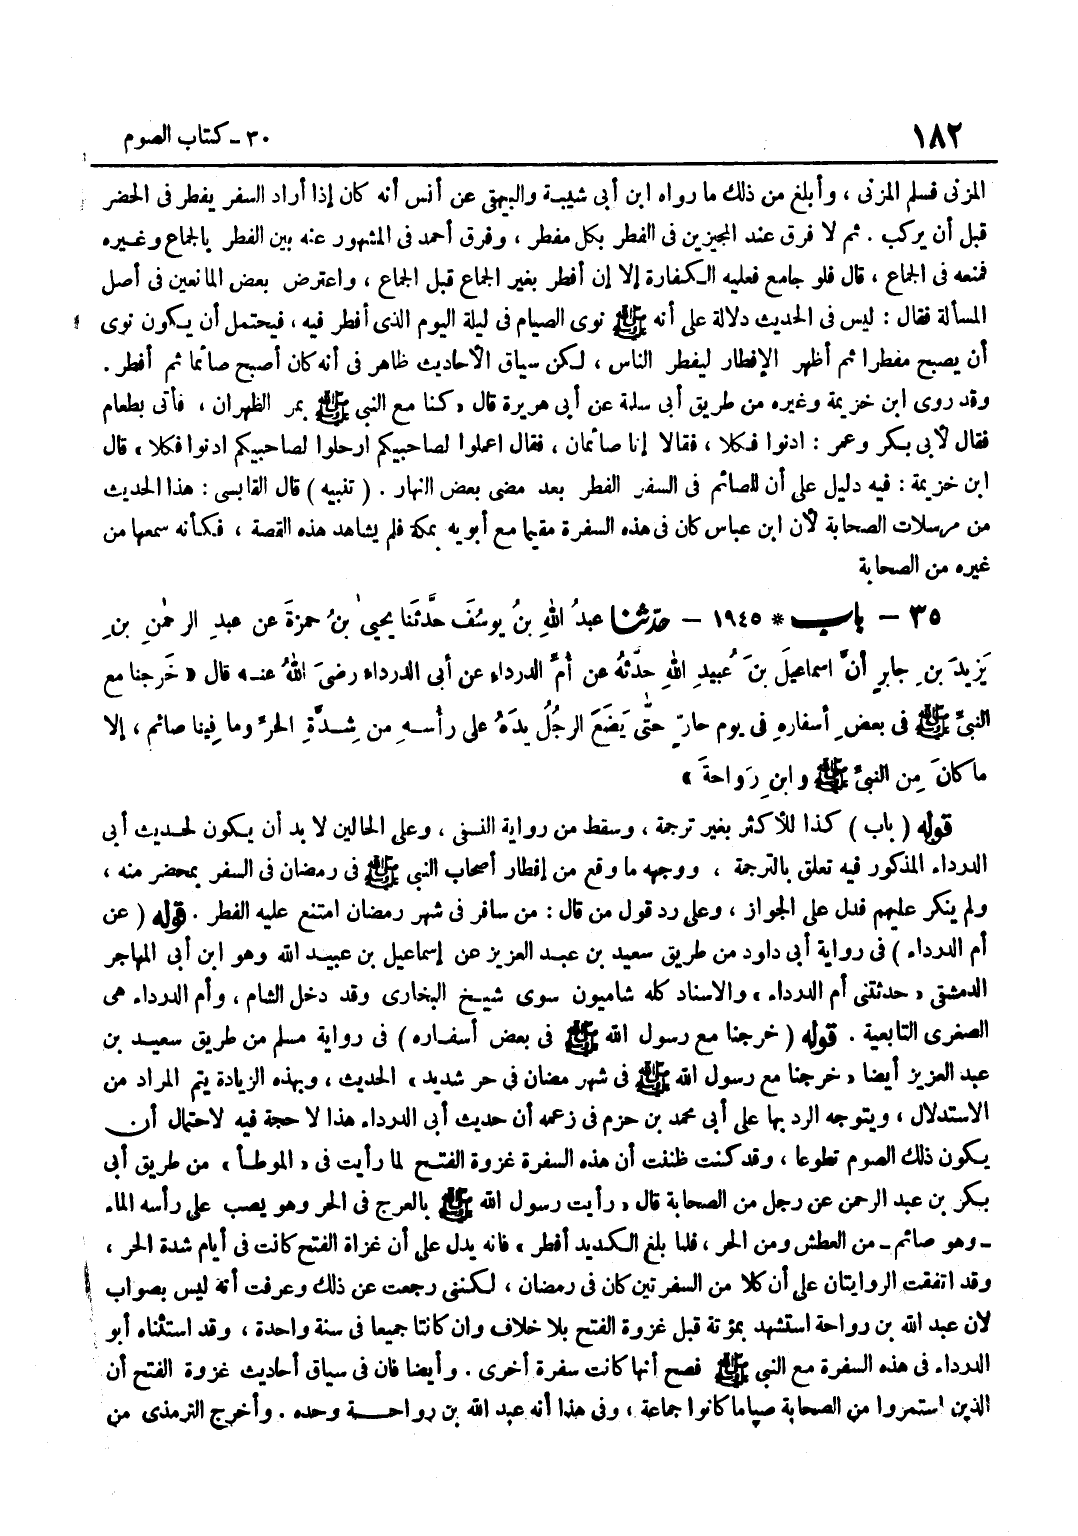 ١٨٢
٣٠ - كتاب الصوم
المزنى فسلم المزنى ، وأبلغ من ذلك ما رواه ابن أبى شيبة والبيهقى عن أنس أنه كان إذا أراد السفر يفطر فى الحضر
قبل أن يركب . ثم لا فرق عند المجيزين فى الفطر بكل مفطر ، وفرق أحمد فى المشهور عنه بين الفطر بالجماع وغيره
فمنعه فى الجماع ، قال فلو جامع فعليه الكفارة إلا إن أفطر بغير الجماع قبل الجماع ، واعترض بعض المانعين فى أصل
المسألة فقال : ليس فى الحديث دلالة على أنه ﷺ نوى الصيام فى ليلة اليوم الذى أفطر فيه ، فيحتمل أن يكون نوى
أن يصبح مفطرا ثم أظهر الإفطار ليفطر الناس ، لكن سياق الأحاديث ظاهر فى أنه كان أصبح صائما ثم أفطر .
وقد روى ابن خزيمة وغيره من طريق أبى سلمة عن أبى هريرة قال « كنا مع النبى ﷺ بمر الظهران ، فأتى بطعام
فقال لأبى بكر وعمر : ادنوا فكلا ، فقالا إنا صائمان ، فقال اعملوا لصاحبيكم ارحلوا لصاحبيكم ادنوا فكلا » قال
ابن خزيمة : فيه دليل على أن للصائم فى السفر الفطر بعد مضى بعض النهار . ( تنبيه ) قال القابسى : هذا الحديث
من مرسلات الصحابة لأن ابن عباس كان فى هذه السفرة مقيما مع أبويه بمكة فلم يشاهد هذه القصة ، فكأنه سمعها من
غيره من الصحابة
٣٥ - باب * ١٩٤٥ - حدثنا عبدُ اللهِ بنُ يوسُفَ حدَّثَنا يحيىٰ بنُ حمزةَ عن عبدِ الرحمٰنِ بنِ
يَزيدَ بنِ جابرٍ أنَّ اسماعيلَ بنَ عُبيدِ اللهِ حدَّثهُ عن أمِّ الدرداءِ عن أبى الدرداء رضىَ اللهُ عنه قال « خَرجنا مع
النبىِّ ﷺ فى بعضِ أسفارهِ فى يوم حارٍّ حتَّى يَضَعَ الرجُلُ يدَهُ على رأسهِ من شِدَّةِ الحرِّ وما فِينا صائم ، إلا
ما كانَ مِن النبىِّ ﷺ وابنِ رَواحةَ »
قوله ( باب ) كذا للأكثر بغير ترجمة ، وسقط من رواية النسفى ، وعلى الحالين لا بد أن يكون لحديث أبى
الدرداء المذكور فيه تعلق بالترجمة ، ووجهه ما وقع من إفطار أصحاب النبى ﷺ فى رمضان فى السفر بمحضر منه ،
ولم ينكر عليهم فدل على الجواز ، وعلى رد قول من قال : من سافر فى شهر رمضان امتنع عليه الفطر . قوله ( عن
أم الدرداء ) فى رواية أبى داود من طريق سعيد بن عبد العزيز عن إسماعيل بن عبيد الله وهو ابن أبى المهاجر
الدمشقى « حدثتنى أم الدرداء » والاسناد كله شاميون سوى شيخ البخارى وقد دخل الشام ، وأم الدرداء هى
الصغرى التابعية . قوله ( خرجنا مع رسول الله ﷺ فى بعض أسفاره ) فى رواية مسلم من طريق سعيد بن
عبد العزيز أيضا « خرجنا مع رسول الله ﷺ فى شهر مضان فى حر شديد » الحديث ، وبهذه الزيادة يتم المراد من
الاستدلال ، ويتوجه الرد بها على أبى محمد بن حزم فى زعمه أن حديث أبى الدرداء هذا لا حجة فيه لاحتمال أن
يكون ذلك الصوم تطوعا ، وقد كنت ظننت أن هذه السفرة غزوة الفتح لما رأيت فى « الموطأ » من طريق أبى
بكر بن عبد الرحمن عن رجل من الصحابة قال « رأيت رسول الله ﷺ بالعرج فى الحر وهو يصب على رأسه الماء
- وهو صائم - من العطش ومن الحر ، فلما بلغ الكديد أفطر » فانه يدل على أن غزاة الفتح كانت فى أيام شدة الحر ،
وقد اتفقت الروايتان على أن كلا من السفرتين كان فى رمضان ، لكننى رجعت عن ذلك وعرفت أنه ليس بصواب
لان عبد الله بن رواحة استشهد بمؤتة قبل غزوة الفتح بلا خلاف وان كانتا جميعا فى سنة واحدة ، وقد استثناه أبو
الدرداء فى هذه السفرة مع النبى ﷺ فصح أنها كانت سفرة أخرى . وأيضا فان فى سياق أحاديث غزوة الفتح أن
الذين استمروا من الصحابة صياما كانوا جماعة ، وفى هذا أنه عبد الله بن رواحة وحده . وأخرج الترمذى من